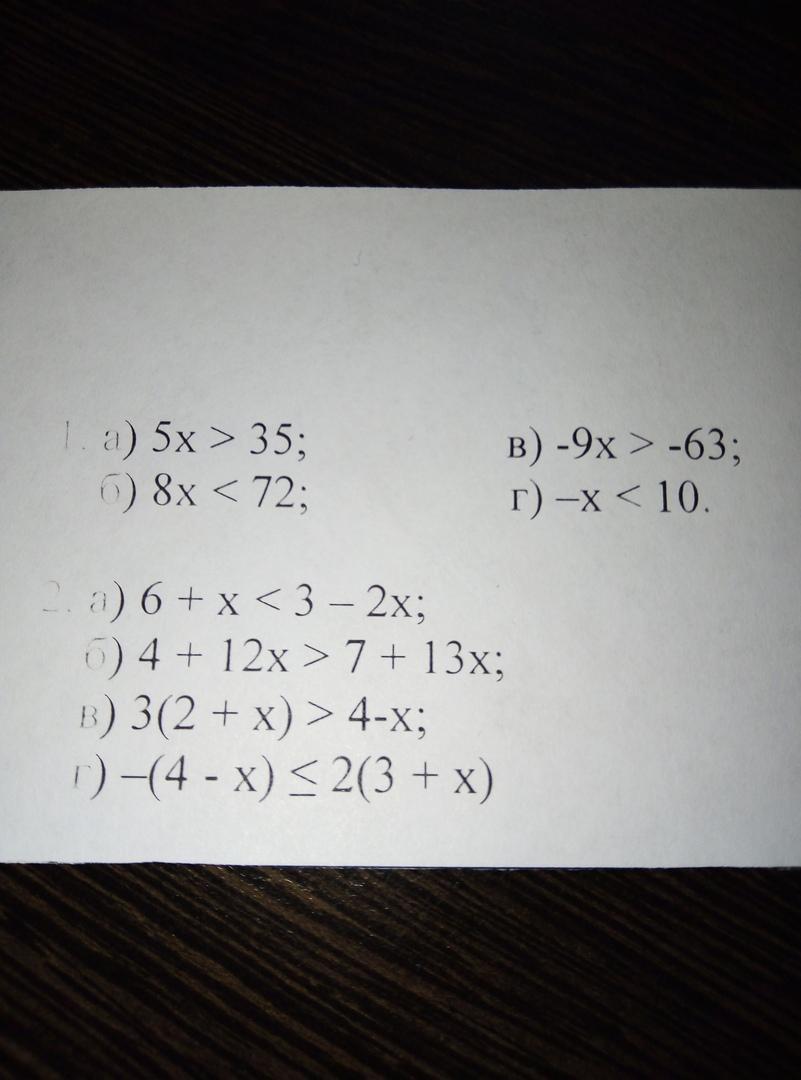 1. а) 5x > 35; в) -9x > -63;
б) 8x < 72; г) –x < 10.
2. а) 6 + x < 3 – 2x;
б) 4 + 12x > 7 + 13x;
в) 3(2 + x) > 4-x;
г) –(4 - x) ≤ 2(3 + x)